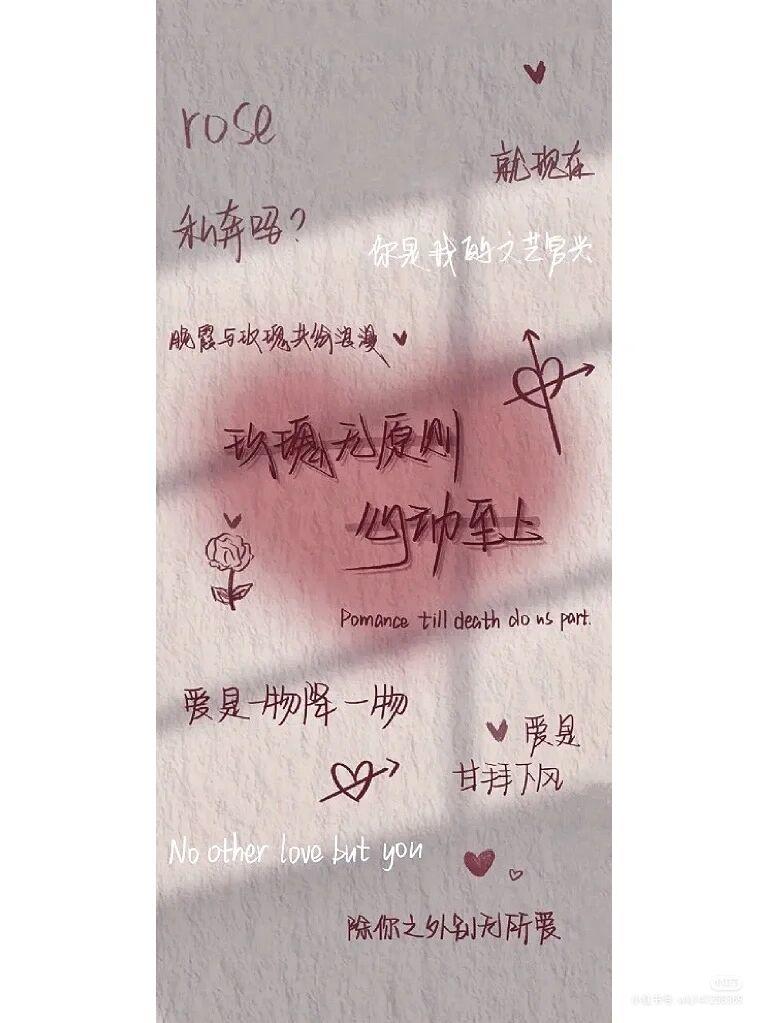 rose
就现在
私奔吗?
你是我的文艺复兴
晚霞与玫瑰共给浪漫
玫瑰无原则
心动至上
Pomance till death do us part.
爱是一物降一物
爱是
甘拜下风
No other love but you
除你之外别无所爱
小红书